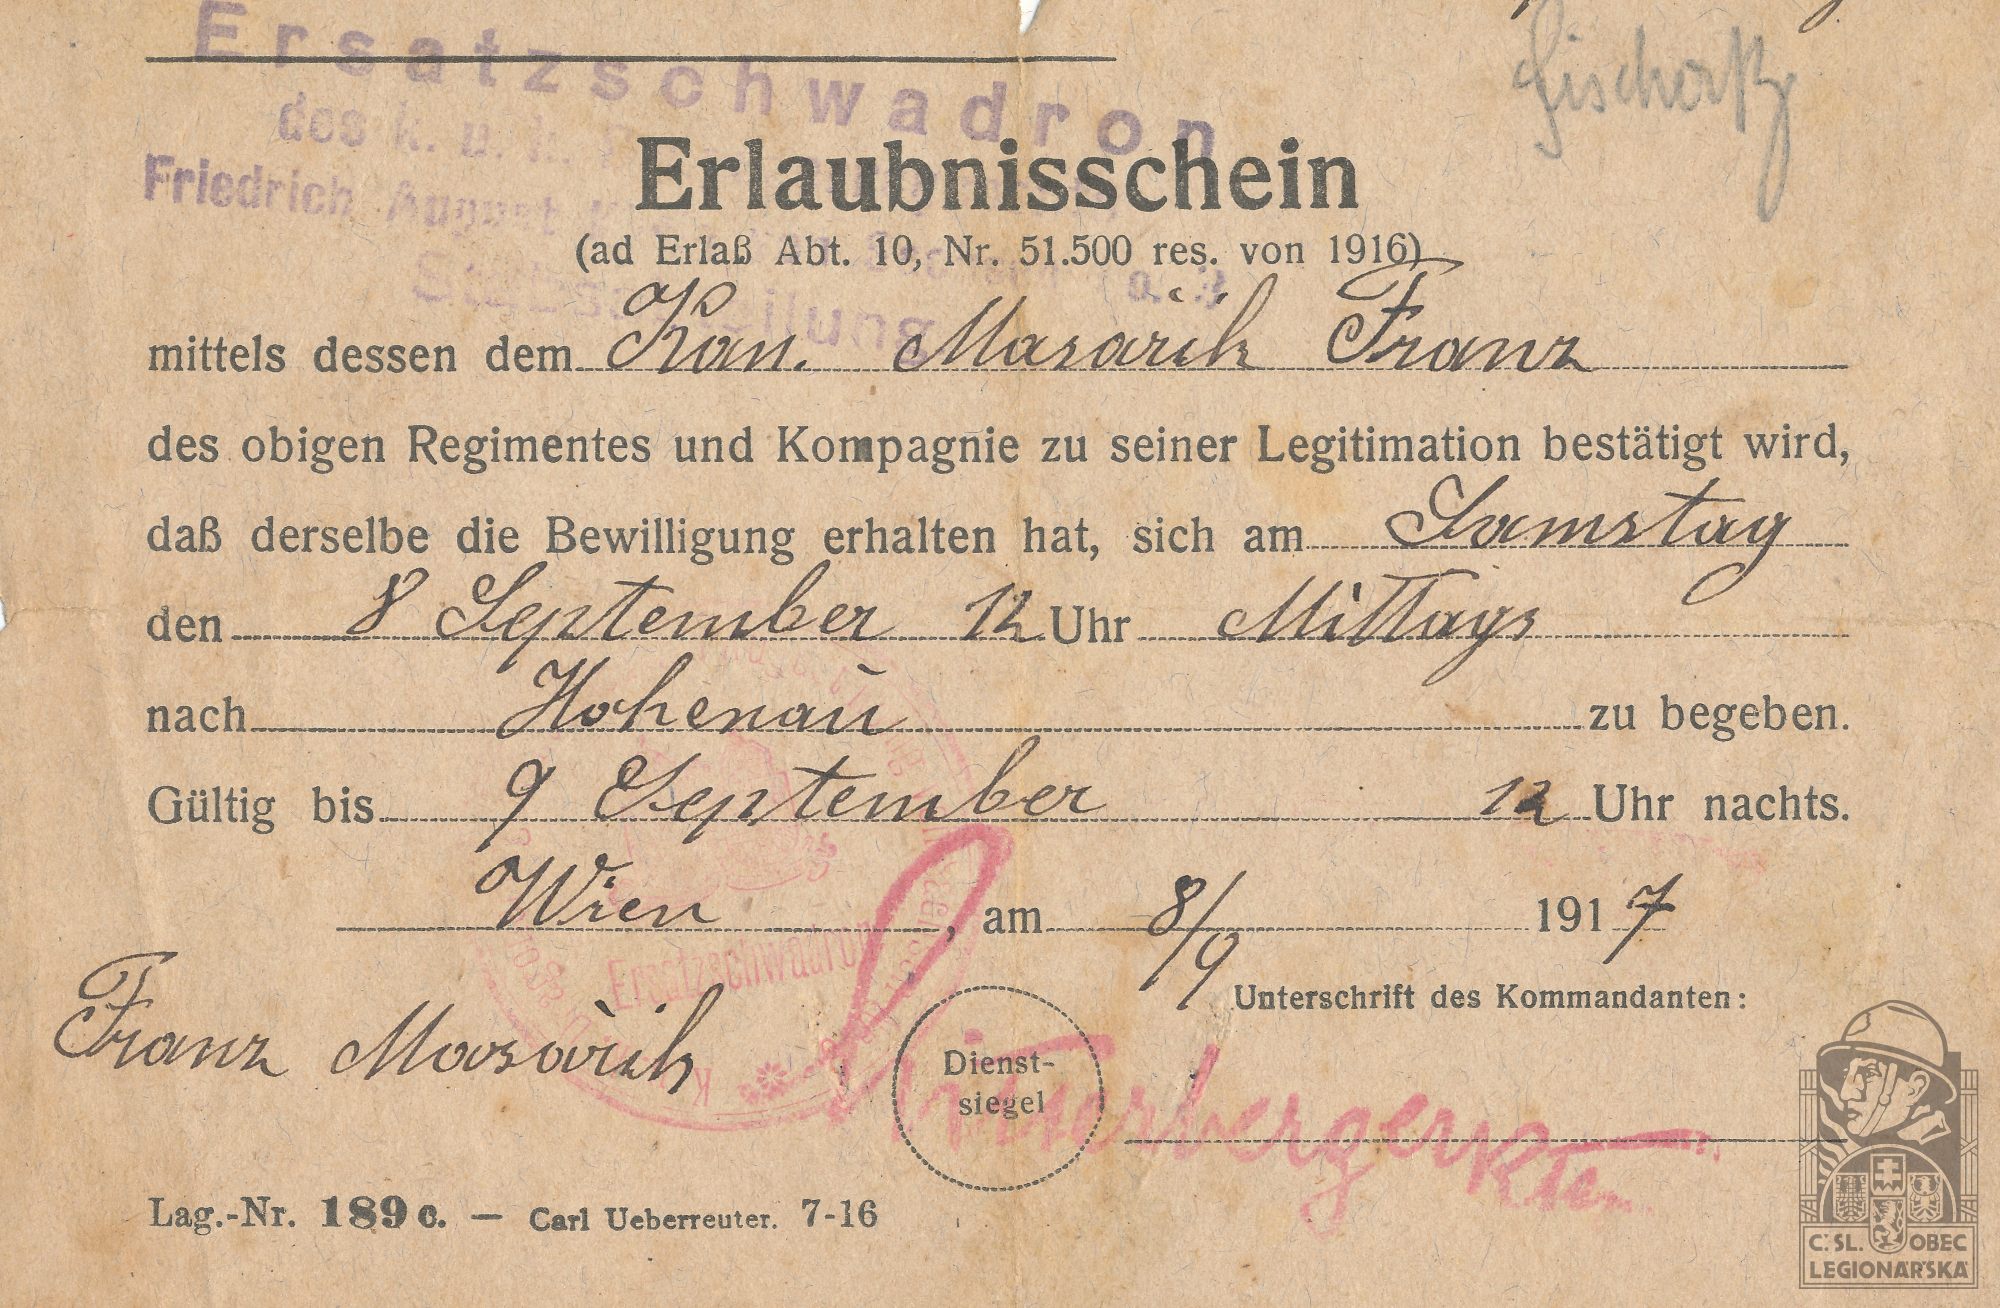 Ersatzschwadron
des k. u. k.
Friedrich August
Erlaubnisschein
(ad Erlaß Abt. 10, Nr. 51.500 res. von 1916)
mittels dessen dem Kan. Masařik Franz
des obigen Regimentes und Kompagnie zu seiner Legitimation bestätigt wird,
daß derselbe die Bewilligung erhalten hat, sich am Samstag
den 8 September 12 Uhr Mittags
nach Hohenau zu begeben.
Gültig bis 9 September 12 Uhr nachts.
Wien, am 8/9 1917
Ersatzschwadron
Unterschrift des Kommandanten:
Franz Masařik
Dienst-
siegel
Lag.-Nr. 189 c. — Carl Ueberreuter. 7-16
Č.SL. OBEC
LEGIONÁŘSKÁ